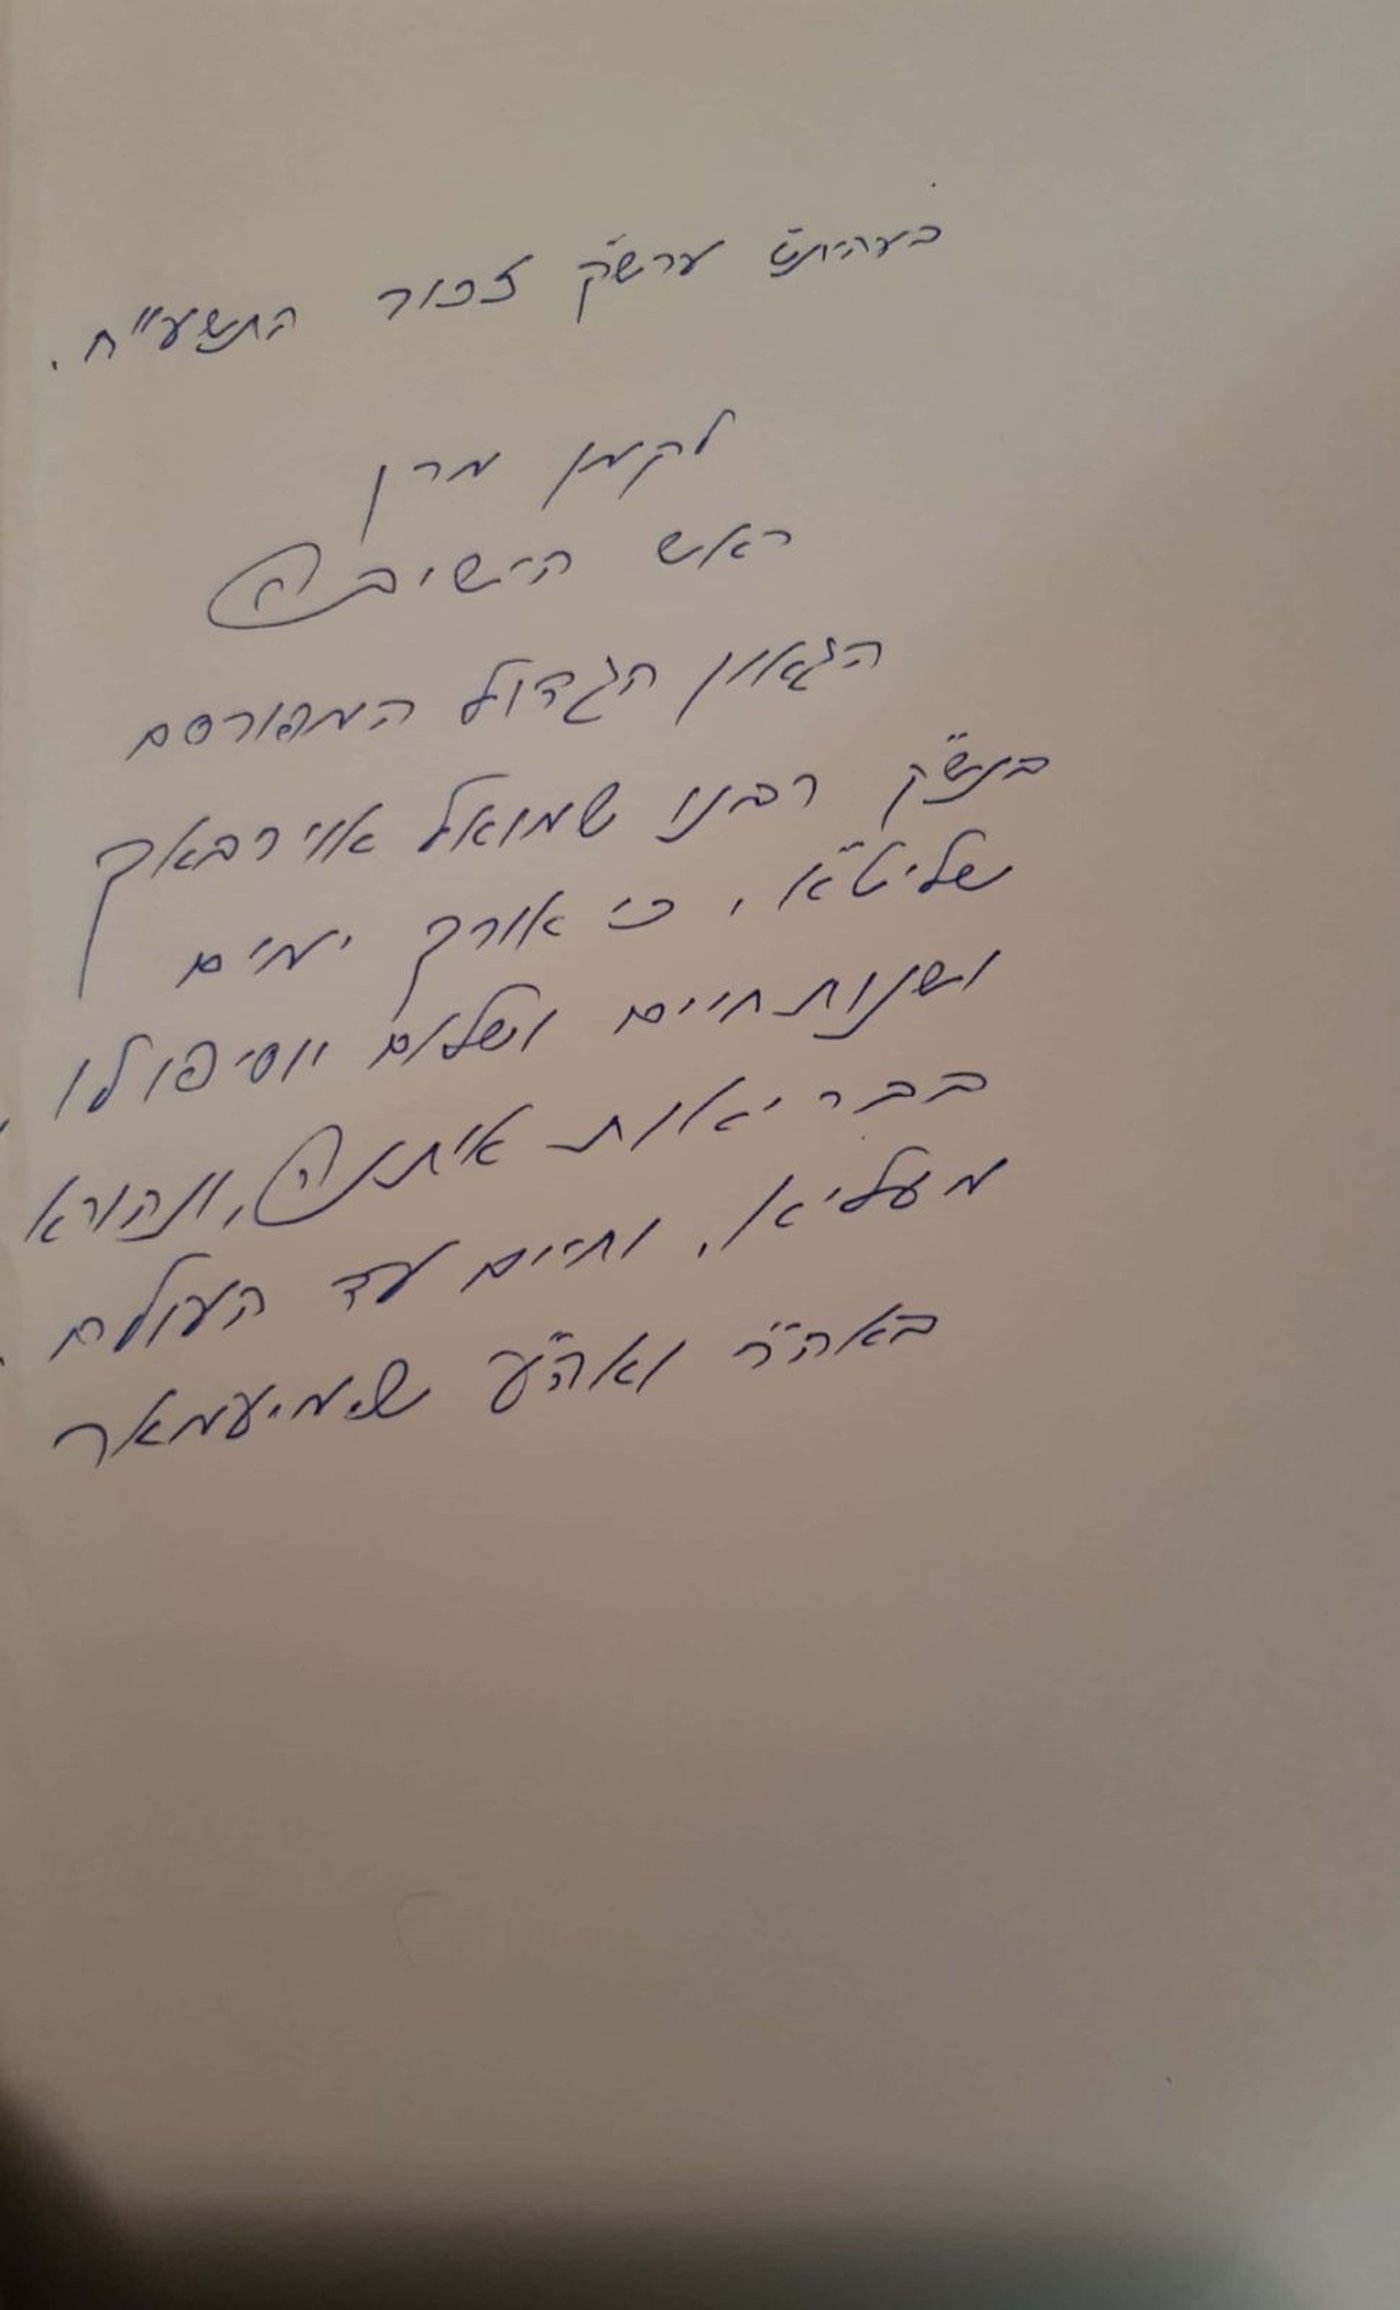 בעהי"ת ערש"ק זכור התשע"ח.
לקמן מרן
ראש הישיבה
הגאון הגדול המפורסם
בנש"ק רבנו שמואל אוירבאך
שליט"א, כי אורך ימים
ושנות חיים ושלום יוסיפו לו
בבריאות איתנה, ונהורא
מעליא, וחיים עד העולם
באה"ר ואה"ע